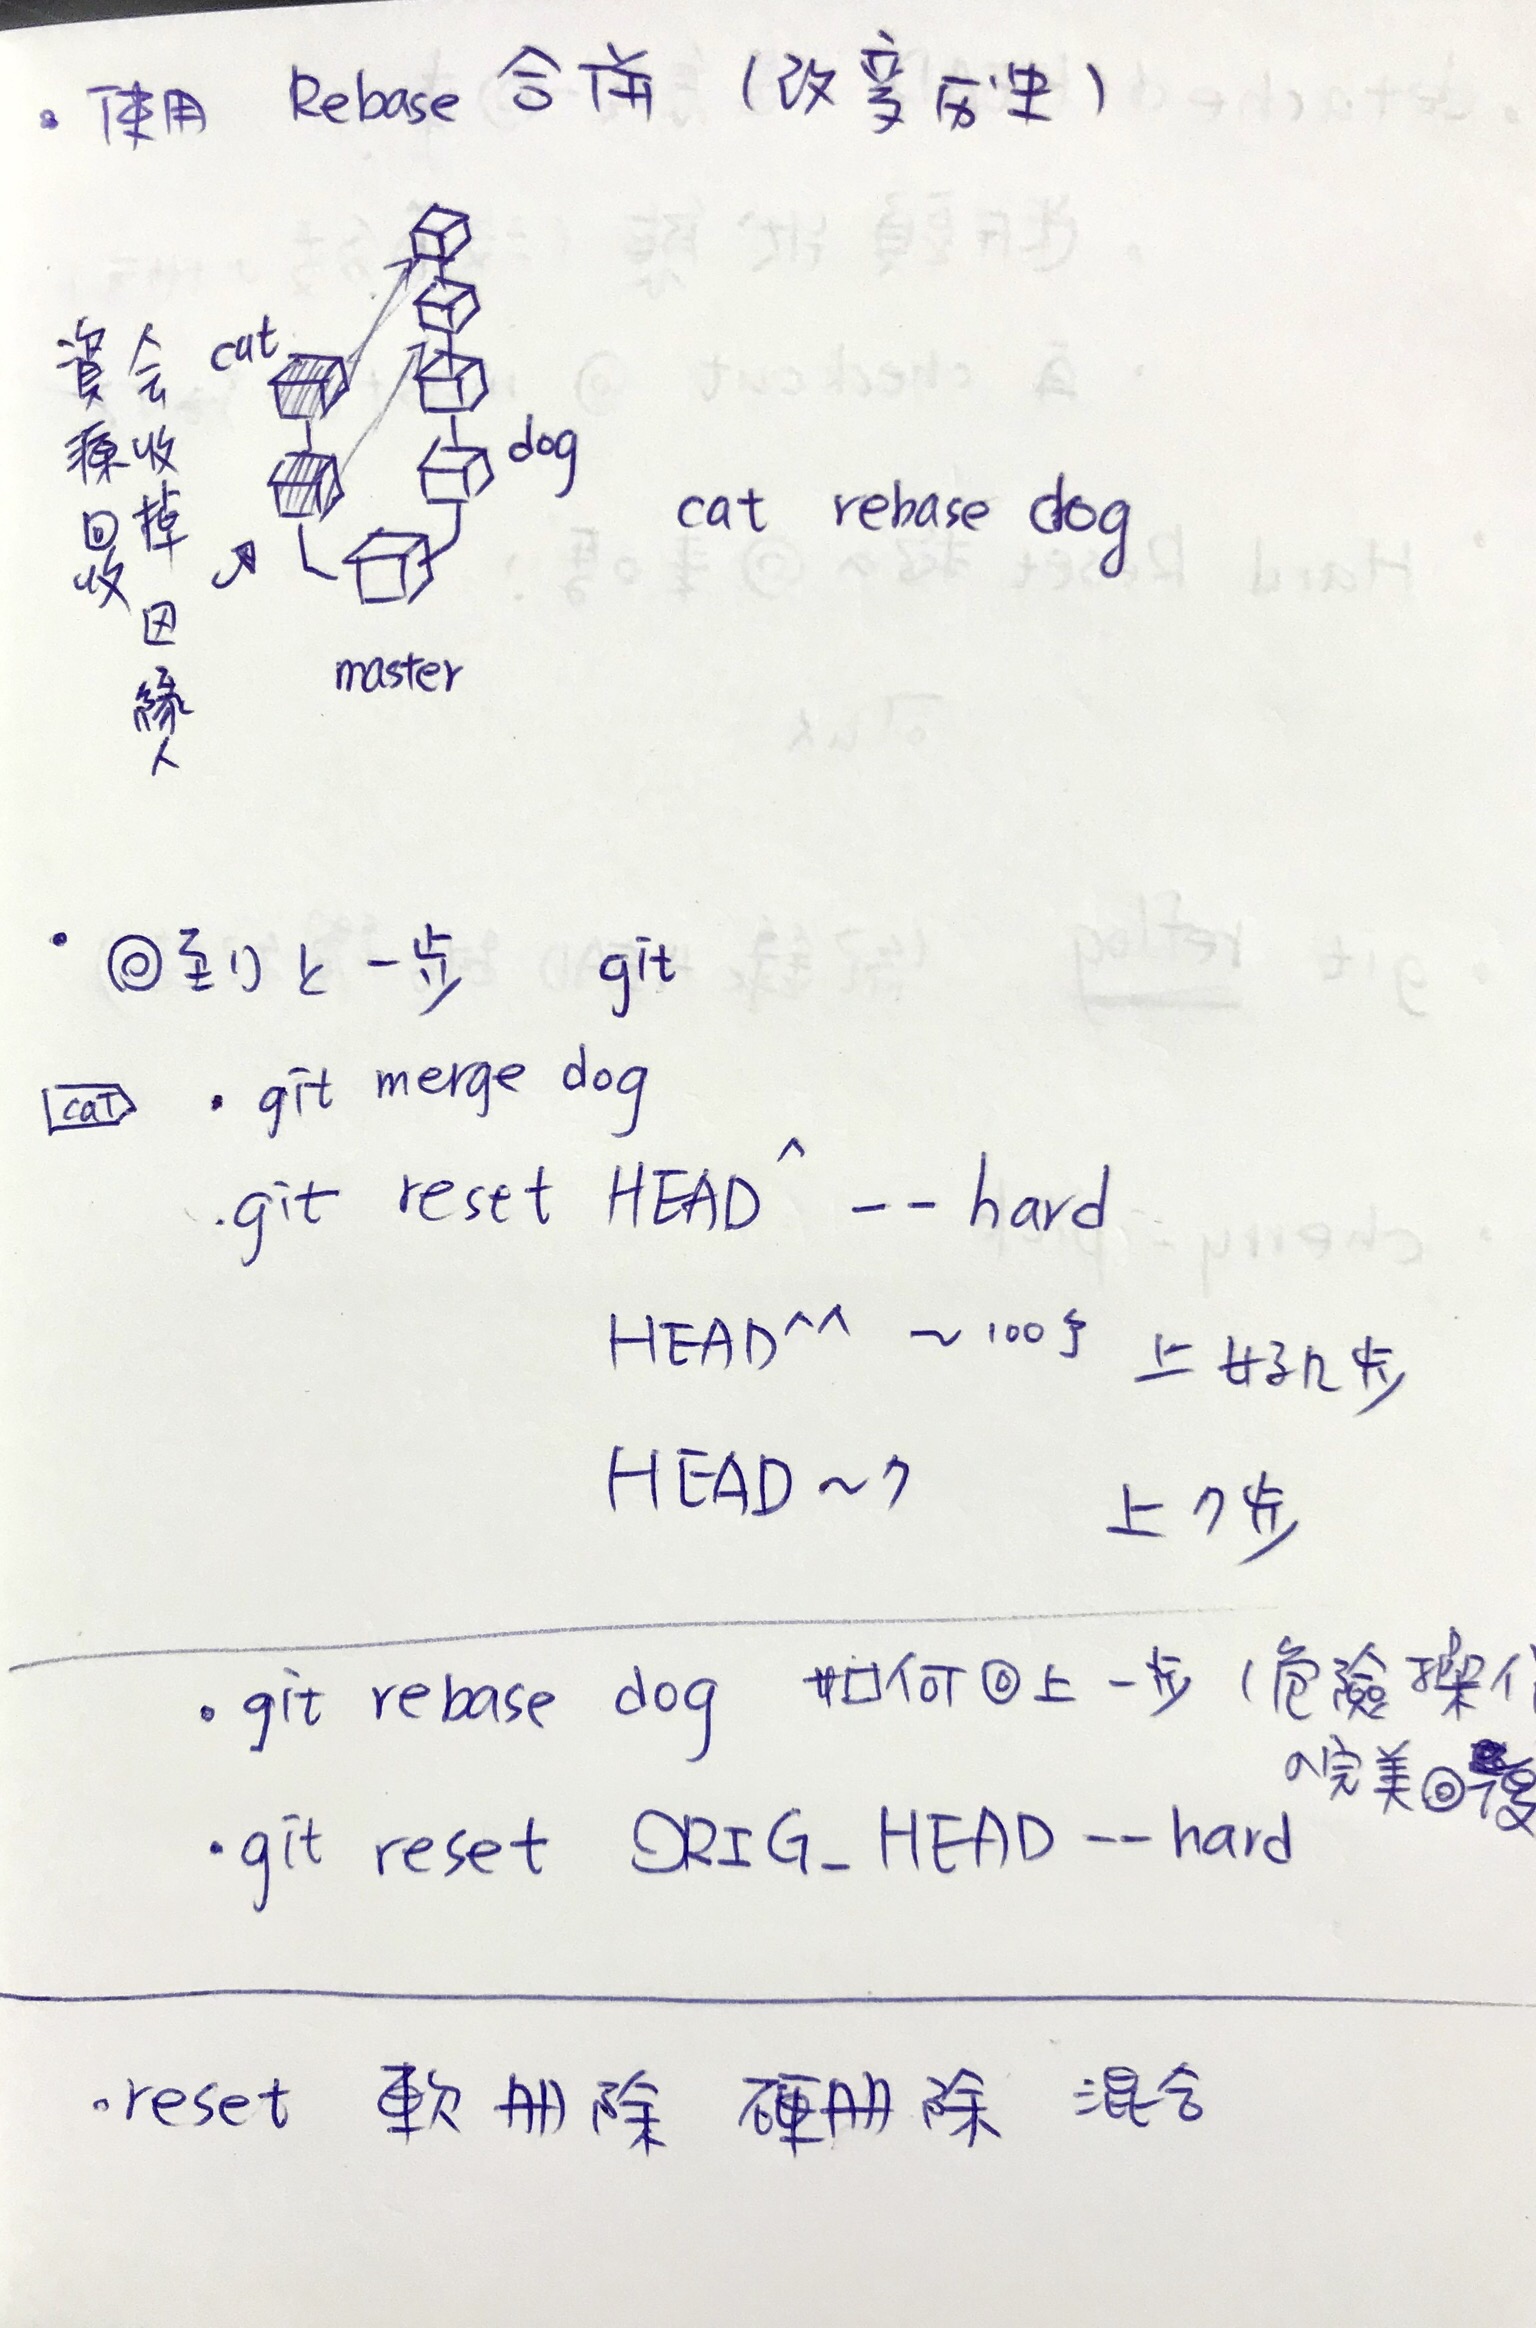 • 使用 Rebase 合併 (改變历史)
cat
dog
資源回收
会收掉因緣人
cat rebase dog
master
• 回到上一步 git
cat • git merge dog
• git reset HEAD^ --hard
HEAD^^ ~100多 上好几步
HEAD~7 上7步
• git rebase dog 如何回上一步 (危險操作
的完美回復
• git reset ORIG_HEAD --hard
• reset 軟刪除 硬刪除 混合